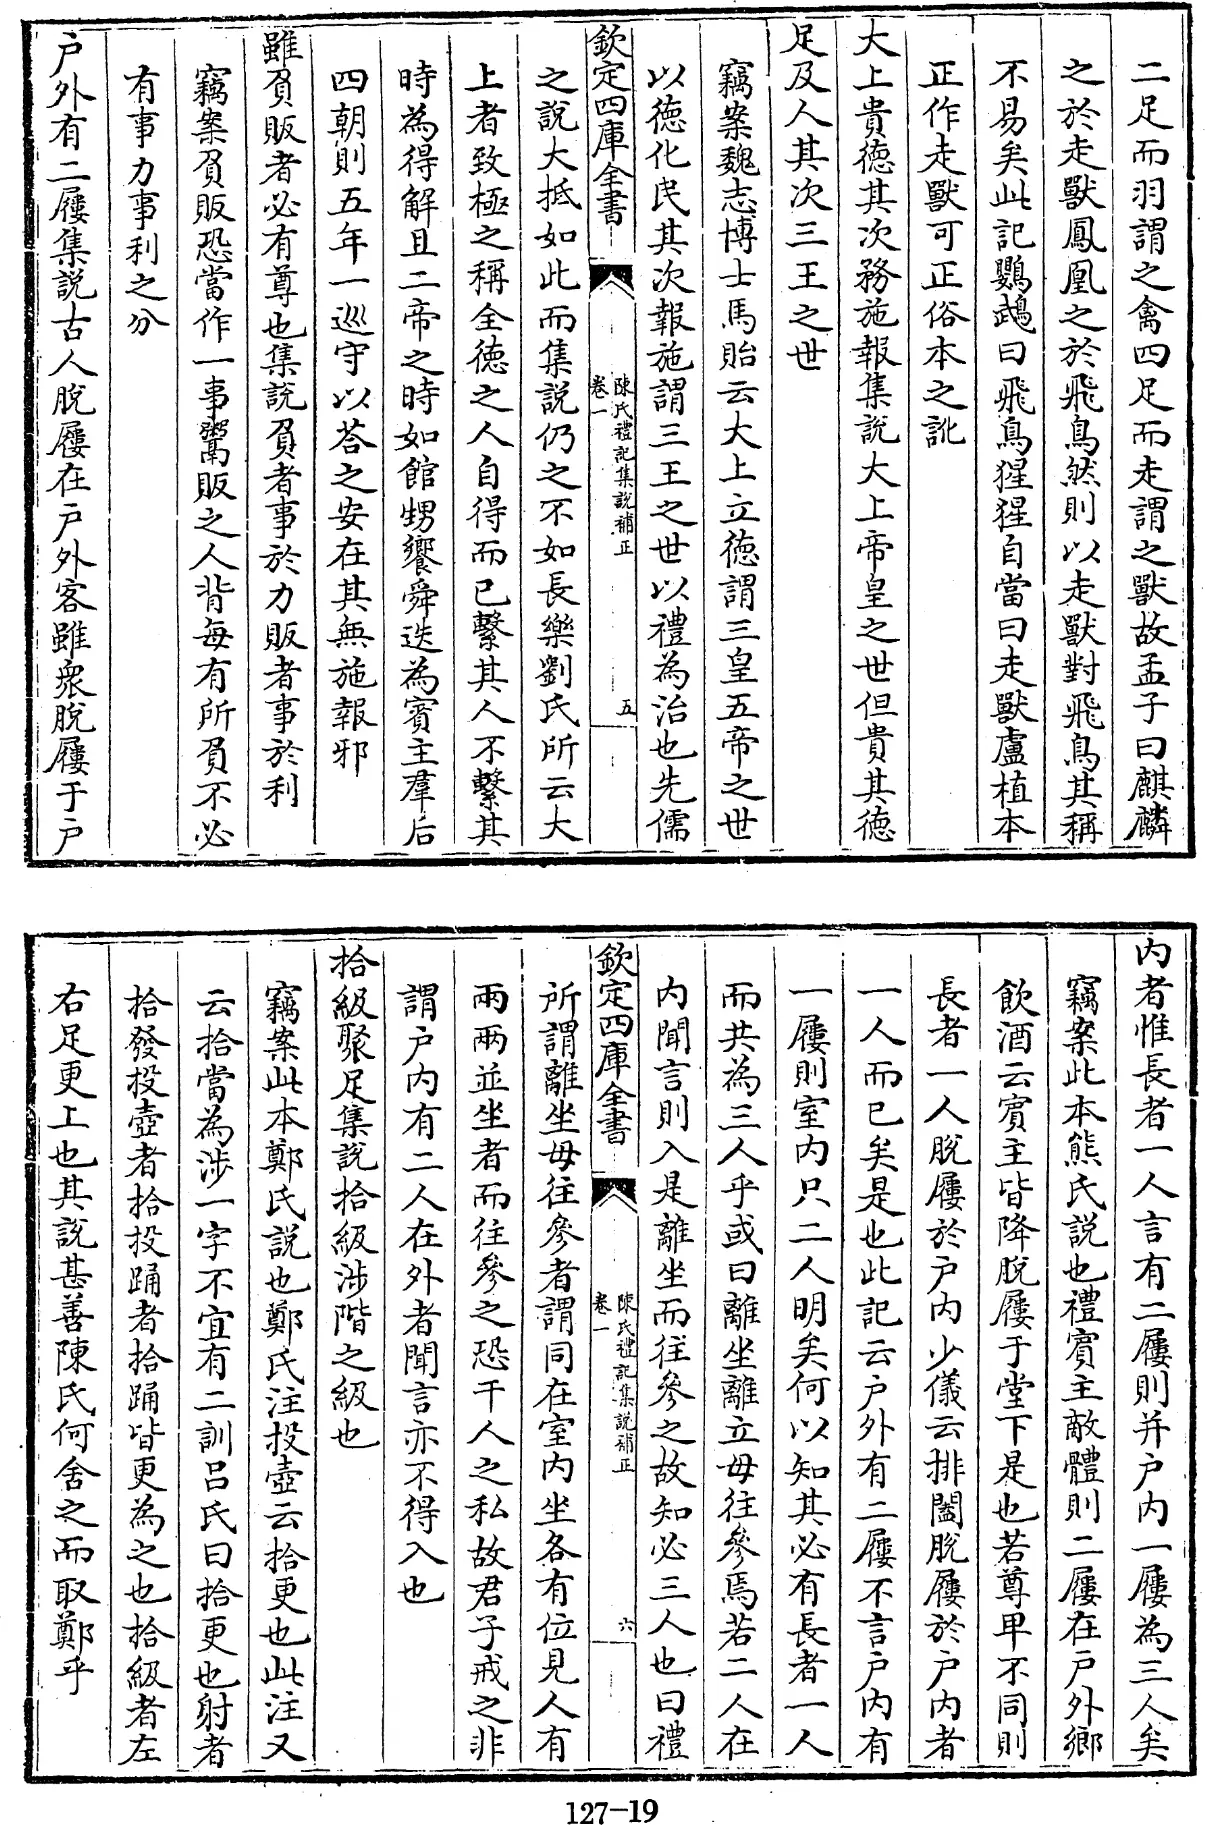 二足而羽謂之禽四足而走謂之獸故孟子曰麒麟
之於走獸鳳凰之於飛鳥然則以走獸對飛鳥其稱
不易矣此記鸚鵡曰飛鳥猩猩自當曰走獸盧植本
正作走獸可正俗本之訛
大上貴德其次務施報集說大上帝皇之世但貴其德
足及人其次三王之世
竊案魏志博士馬貽云大上立德謂三皇五帝之世
以德化民其次報施謂三王之世以禮為治也先儒
欽定四庫全書
陳氏禮記集說補正
卷一
五
之說大抵如此而集說仍之不如長樂劉氏所云大
上者致極之稱全德之人自得而已繫其人不繫其
時為得解且二帝之時如館甥饗舜迭為賓主羣后
四朝則五年一巡守以荅之安在其無施報邪
雖負販者必有尊也集說負者事於力販者事於利
竊案負販恐當作一事鬻販之人背每有所負不必
有事力事利之分
户外有二屨集說古人脫屨在户外客雖衆脫屨于户
内者惟長者一人言有二屨則并户内一屨為三人矣
竊案此本熊氏說也禮賓主敵體則二屨在户外鄉
飲酒云賓主皆降脫屨于堂下是也若尊卑不同則
長者一人脫屨於户内少儀云排闔脫屨於户内者
一人而已矣是也此記云户外有二屨不言户内有
一屨則室内只二人明矣何以知其必有長者一人
而共為三人乎或曰離坐離立毋往參焉若二人在
内聞言則入是離坐而往參之故知必三人也曰禮
欽定四庫全書
陳氏禮記集說補正
卷一
六
所謂離坐毋往參者謂同在室内坐各有位見人有
兩兩並坐者而往參之恐干人之私故君子戒之非
謂户内有二人在外者聞言亦不得入也
拾級聚足集說拾級涉階之級也
竊案此本鄭氏說也鄭氏注投壺云拾更也此注又
云拾當為涉一字不宜有二訓呂氏曰拾更也射者
拾發投壺者拾投踊者拾踊皆更為之也拾級者左
右足更上也其說甚善陳氏何舍之而取鄭乎
127-19